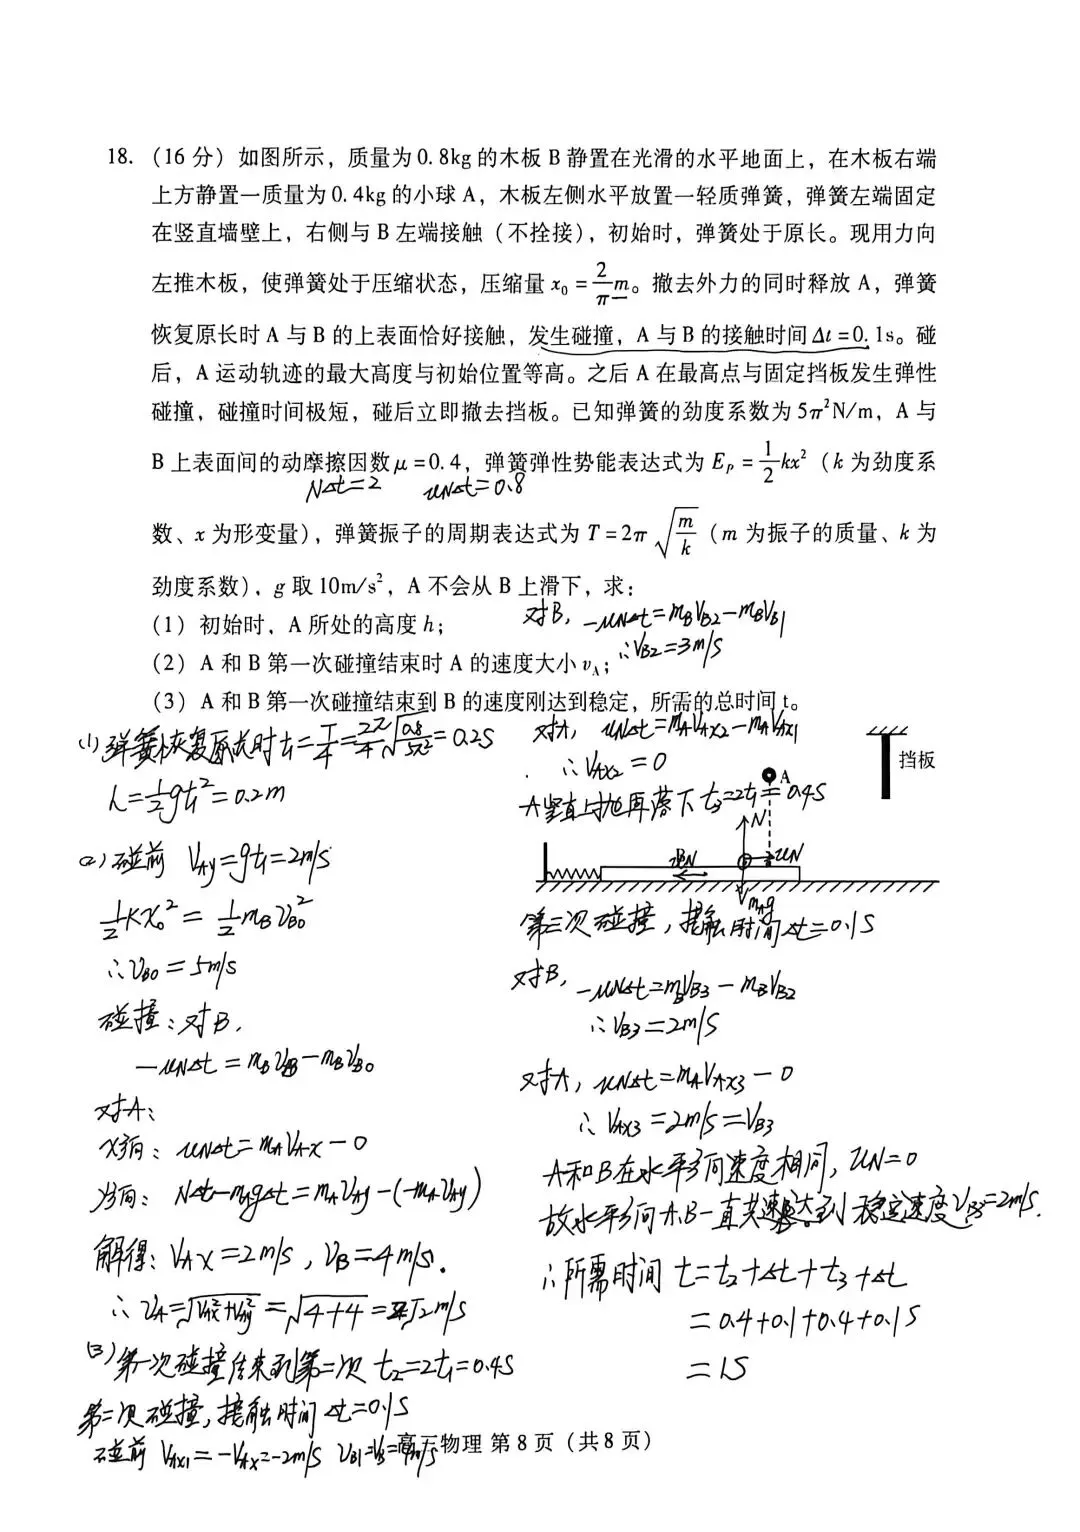 18. (16 分) 如图所示，质量为 0.8kg 的木板 B 静置在光滑的水平地面上，在木板右端
上方静置一质量为 0.4kg 的小球 A，木板左侧水平放置一轻质弹簧，弹簧左端固定
在竖直墙壁上，右侧与 B 左端接触（不拴接），初始时，弹簧处于原长。现用力向
左推木板，使弹簧处于压缩状态，压缩量 x₀ = 2/π m。撤去外力的同时释放 A，弹簧
恢复原长时 A 与 B 的上表面恰好接触，发生碰撞，A 与 B 的接触时间 Δt = 0.1s。碰
后，A 运动轨迹的最大高度与初始位置等高。之后 A 在最高点与固定挡板发生弹性
碰撞，碰撞时间极短，碰后立即撤去挡板。已知弹簧的劲度系数为 5π²N/m，A 与
B 上表面间的动摩擦因数 μ = 0.4，弹簧弹性势能表达式为 Eₚ = 1/2 kx²（k 为劲度系
NΔt=2 μNΔt=0.8
数、x 为形变量），弹簧振子的周期表达式为 T = 2π √(m/k)（m 为振子的质量、k 为
劲度系数），g 取 10m/s²，A 不会从 B 上滑下，求：
(1) 初始时，A 所处的高度 h；
(2) A 和 B 第一次碰撞结束时 A 的速度大小 v_A；
(3) A 和 B 第一次碰撞结束到 B 的速度刚达到稳定，所需的总时间 t。
(1) 弹簧恢复原长时 t₁=T/4=2π/4 √(0.8/5π²)=0.2s
h=1/2 gt₁²=0.2m
(2) 碰前 V_Ay=gt₁=2m/s
1/2 kx₀²=1/2 m_B V_B0²
∴V_B0=5m/s
碰撞：对B，
-μNΔt=m_B V_B-m_B V_B0
对A：
x方向：μNΔt=m_A V_Ax-0
y方向：NΔt-m_A gΔt=m_A V_Ay-(-m_A V_Ay)
解得：V_Ax=2m/s，V_B=4m/s.
∴V_A=√(V_Ax²+V_Ay²)=√(4+4)=2√2m/s
(3) 第一次碰撞结束到第二次 t₂=2t₁=0.4s
第二次碰撞，接触时间 Δt=0.1s
碰前 V_Ax1=-V_Ax=-2m/s V_B1=V_B=4m/s
对B，-μNΔt=m_B V_B2-m_B V_B1
∴V_B2=3m/s
对A，μNΔt=m_A V_Ax2-m_A V_Ax1
∴V_Ax2=0
A竖直上抛再落下 t₃=2t₁=0.4s
挡板
A
N
μN
μN
m_A g
第三次碰撞，接触时间 Δt=0.1s
对B，-μNΔt=m_B V_B3-m_B V_B2
∴V_B3=2m/s
对A，μNΔt=m_A V_Ax3-0
∴V_Ax3=2m/s=V_B3
A和B在水平方向速度相同，μN=0
故水平方向A.B一直共速达到稳定速度V_B3=2m/s.
∴所需时间 t=t₂+Δt+t₃+Δt
=0.4+0.1+0.4+0.1s
=1s
高三物理 第 8 页（共 8 页）